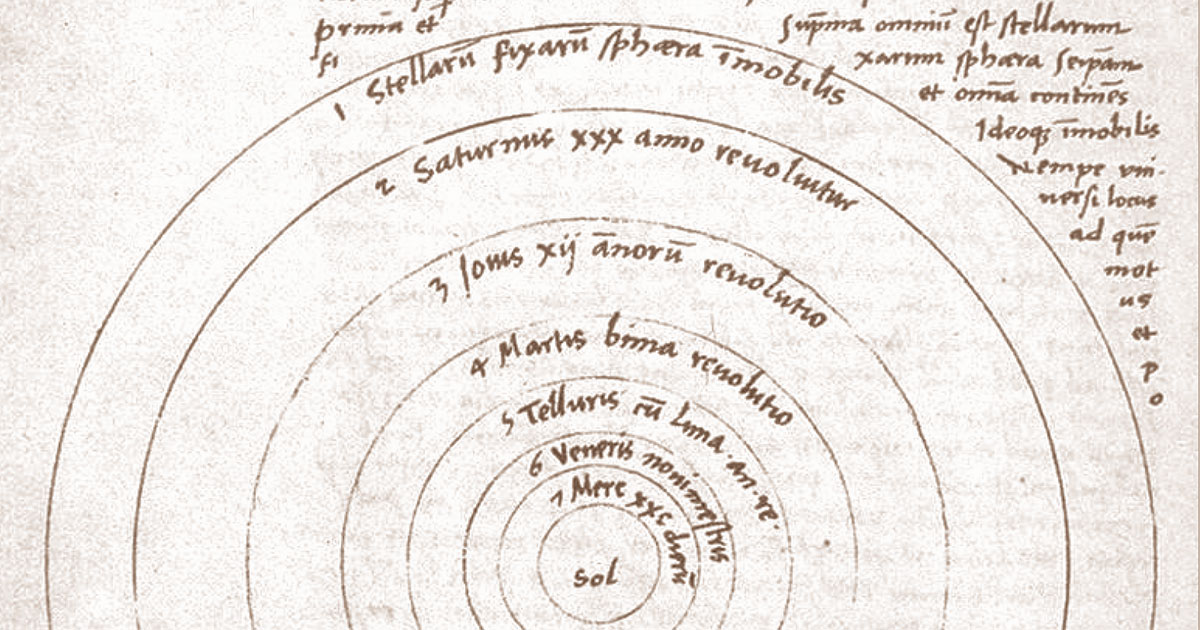 primā et
fi
Suṗma omniū est stellarum
xarum sphæra seipām
et omīa continēs
Ideoqȝ īmobilis
Nempe vni-
uersi locus
ad quē
mot
us
et
p
o
1 Stellarū fixarū sphæra īmobilis
2 Saturnus xxx anno reuoluitur
3 Iouis xij ānorū reuolutio
4 Martis bima reuolutio
5 Telluris cū Luna . an . re .
6 Veneris nonimestris
7 Merc xxc dierū
Sol